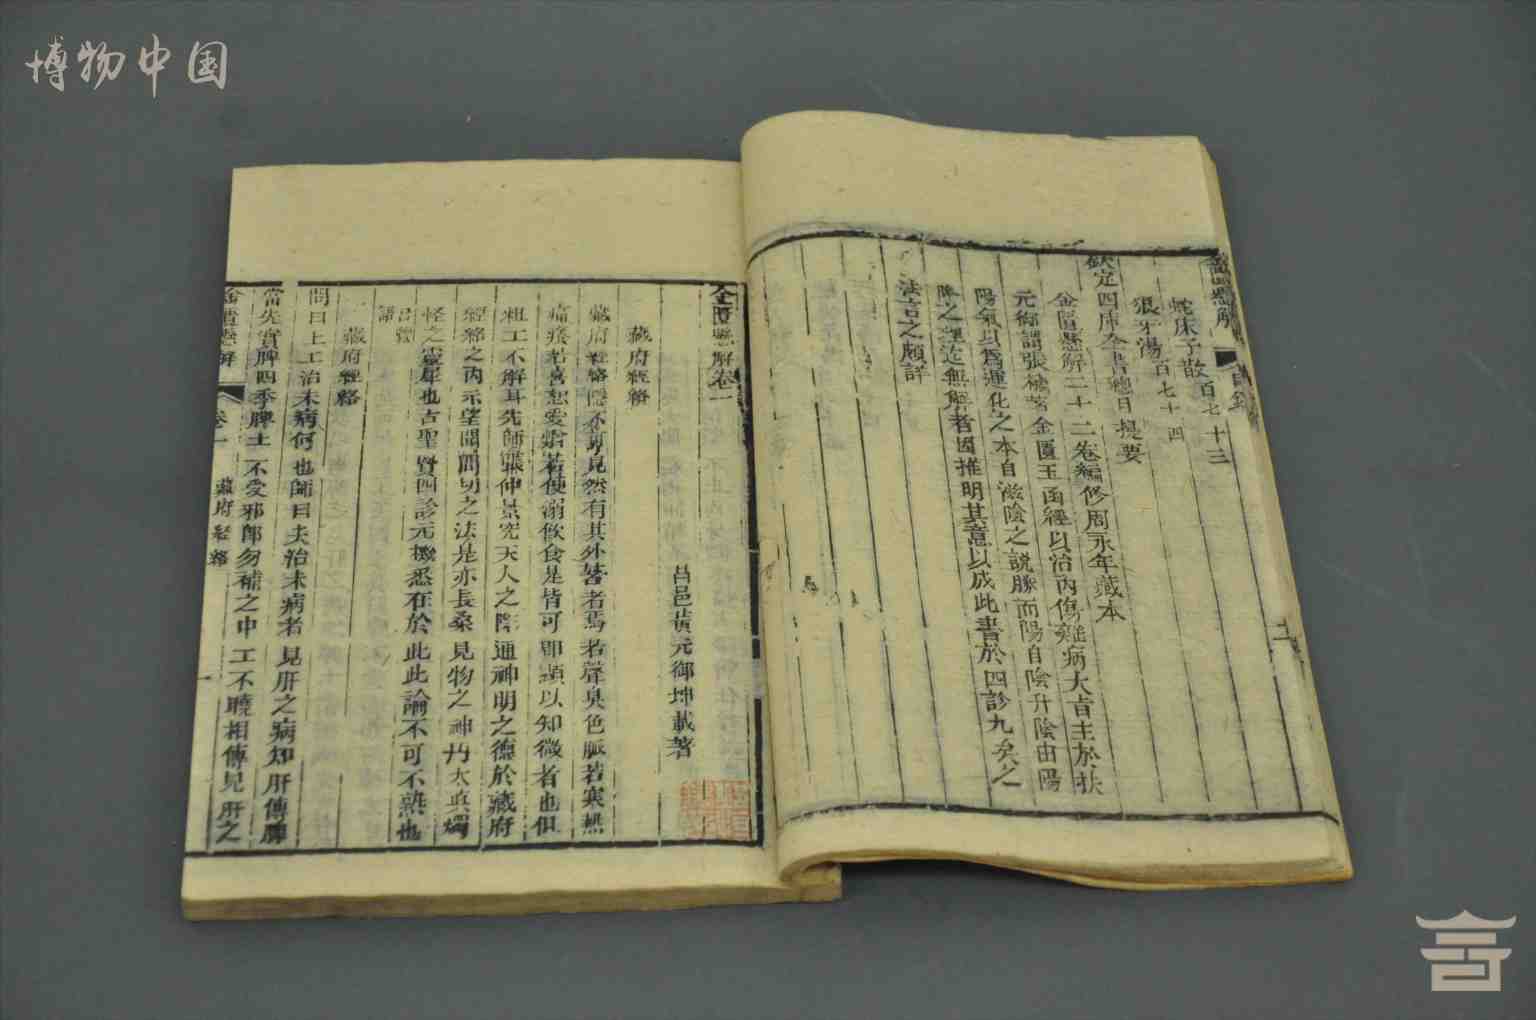 博物中国
蛇床子散百七十三
狼牙湯百七十四
欽定四庫全書總目提要
金匱懸解二十二卷編修周永年藏本
元御謂張機著金匱玉函經以治內傷雜病大旨主於扶
陽氣以爲運化之本自滋陰之說勝而陽自陰升陰由陽
降之理迄無解者因推明其意以成此書於四診九矦之
法言之頗詳
金匱懸解卷一
昌邑黃元御坤載著
藏府經絡
藏府經絡隱不可見然有其外著者焉若聲臭色脈若寒熱
痛癢若喜怒愛憎若便溺飲食是皆可卽顯以知微者也但
粗工不解耳先師張仲景究天人之際通神明之德於藏府
經絡之內示望聞問切之法是亦長桑見物之神丹太眞燭
怪之靈犀也古聖賢四診元機悉在於此此論不可不熟也
藏府經絡
問曰上工治未病何也師曰夫治未病者見肝之病知肝傳脾
當先實脾四季脾土不受邪卽勿補之中工不曉相傳見肝之
金匱懸解
卷一
藏府經絡
一